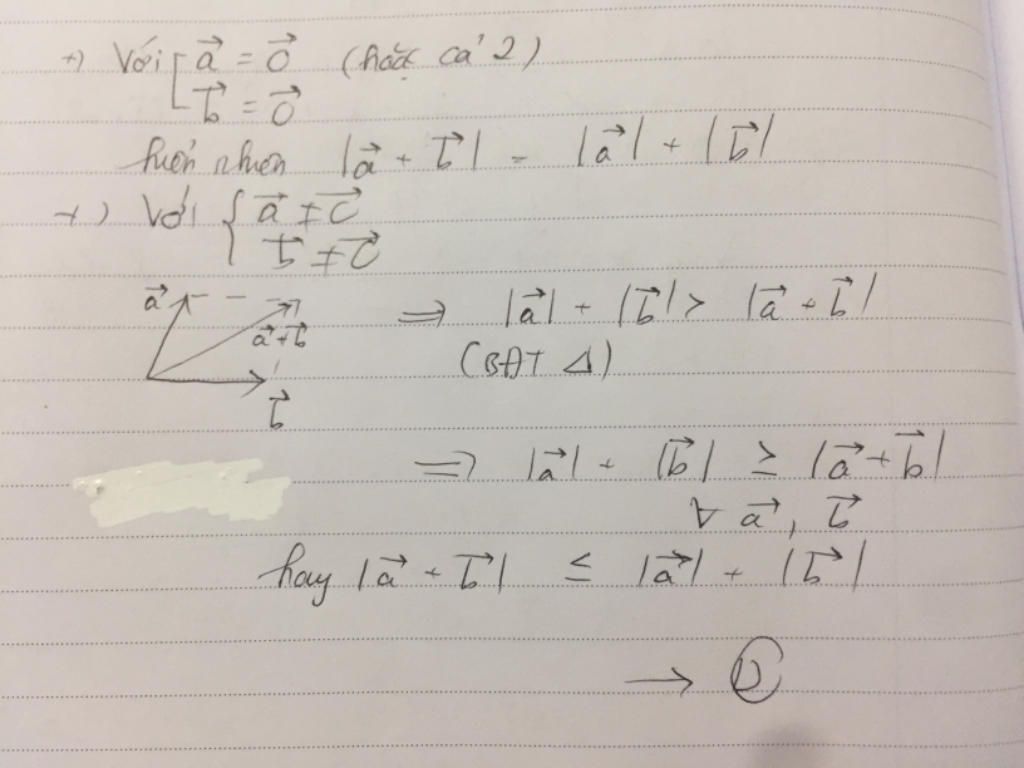 +) Với [ a⃗ = 0⃗ (hoặc cả 2)
b⃗ = 0⃗
hiển nhiên |a⃗ + b⃗| = |a⃗| + |b⃗|
+) Với { a⃗ ≠ 0⃗
b⃗ ≠ 0⃗
a⃗
a⃗+b⃗
b⃗
⇒ |a⃗| + |b⃗| > |a⃗ + b⃗|
(BĐT Δ)
⇒ |a⃗| + |b⃗| ≥ |a⃗ + b⃗|
∀ a⃗, b⃗
hay |a⃗ + b⃗| ≤ |a⃗| + |b⃗|
→ D